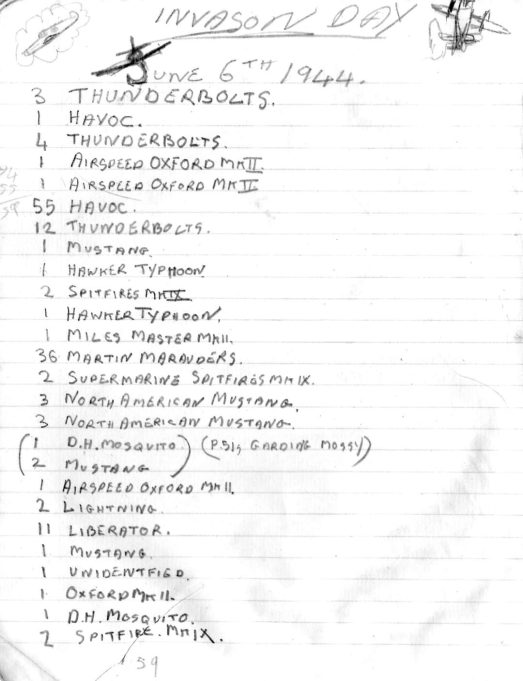 INVASON DAY
JUNE 6TH 1944.
3 THUNDERBOLTS.
1 HAVOC.
4 THUNDERBOLTS.
1 AIRSPEED OXFORD MK II.
1 AIRSPEED OXFORD MK II.
55 HAVOC.
12 THUNDERBOLTS.
1 MUSTANG.
1 HAWKER TYPHOON
2 SPITFIRES MK IX.
1 HAWKER TYPHOON.
1 MILES MASTER MK II.
36 MARTIN MARAUDERS.
2 SUPERMARINE SPITFIRES MK IX.
3 NORTH AMERICAN MUSTANG.
3 NORTH AMERICAN MUSTANG.
(1 D.H. MOSQUITO.) (P.51s GARDING MOSSY)
(2 MUSTANG)
1 AIRSPEED OXFORD MK II.
2 LIGHTNING.
11 LIBERATOR.
1 MUSTANG.
1 UNIDENTFIED.
1 OXFORD MK II.
1 D.H. MOSQUITO.
2 SPITFIRE. MK IX.
59